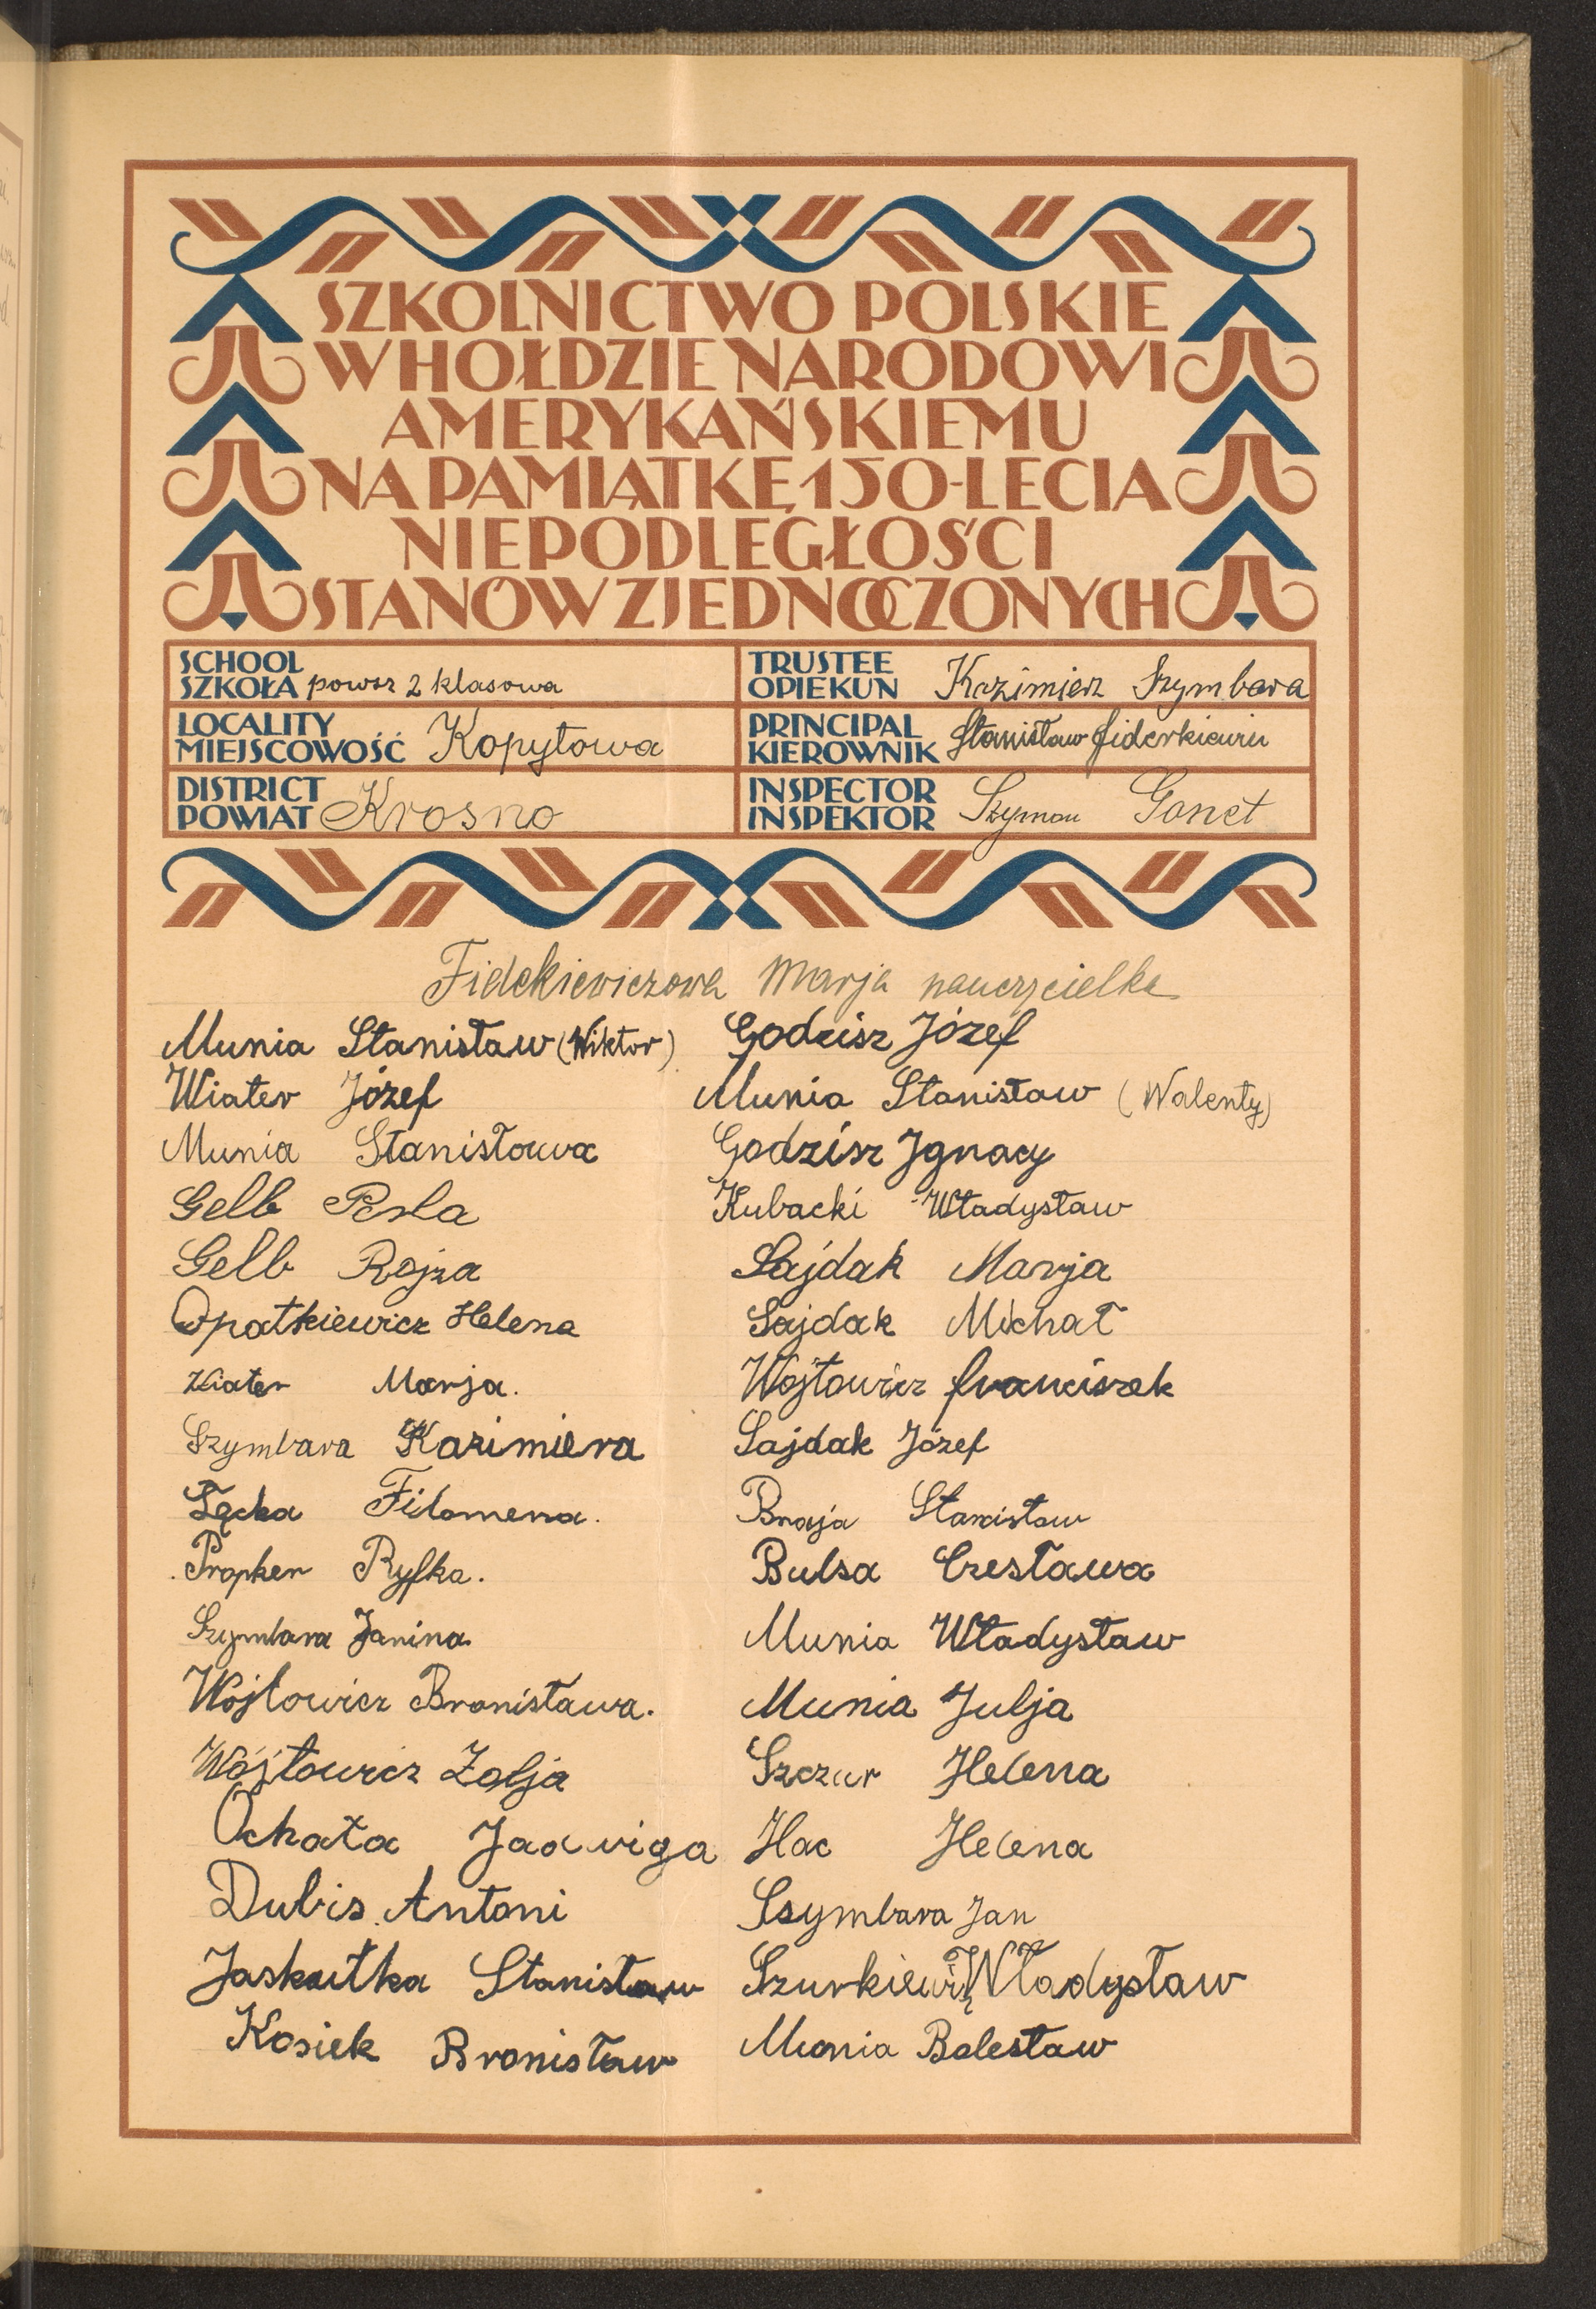 SZKOLNICTWO POLSKIE
W HOŁDZIE NARODOWI
AMERYKAŃSKIEMU
NA PAMIĄTKĘ 150-LECIA
NIEPODLEGŁOŚCI
STANÓW ZJEDNOCZONYCH
SCHOOL
SZKOŁA powsz 2 klasowa
TRUSTEE
OPIEKUN Kazimierz Szymbara
LOCALITY
MIEJSCOWOŚĆ Kopytowa
PRINCIPAL
KIEROWNIK Stanisław Fiderkiewicz
DISTRICT
POWIAT Krosno
INSPECTOR
INSPEKTOR Szymon Gonet
Fidekiewiczowa Marja nauczycielka
Munia Stanisław (Wiktor)
Wiater Józef
Munia Stanisława
Gelb Perla
Gelb Rojza
Opatkiewicz Helena
Wiater Marja.
Szymbara Kazimiera
Łącka Filomena.
Propker Ryfka.
Szymbara Janina
Wojtowicz Bronisława.
Wójtowicz Zofja
Ochała Jadwiga
Dubis Antoni
Jaskułka Stanisław
Kosiek Bronisław
Godzisz Józef
Munia Stanisław (Walenty)
Godzisz Ignacy
Kubacki Władysław
Sajdak Marja
Sajdak Michał
Wojtowicz Franciszek
Sajdak Józef
Braja Stanisław
Bulsa Czesława
Munia Władysław
Munia Julja
Szczur Helena
Hac Helena
Szymbara Jan
Szurkiewicz Władysław
Munia Bolesław